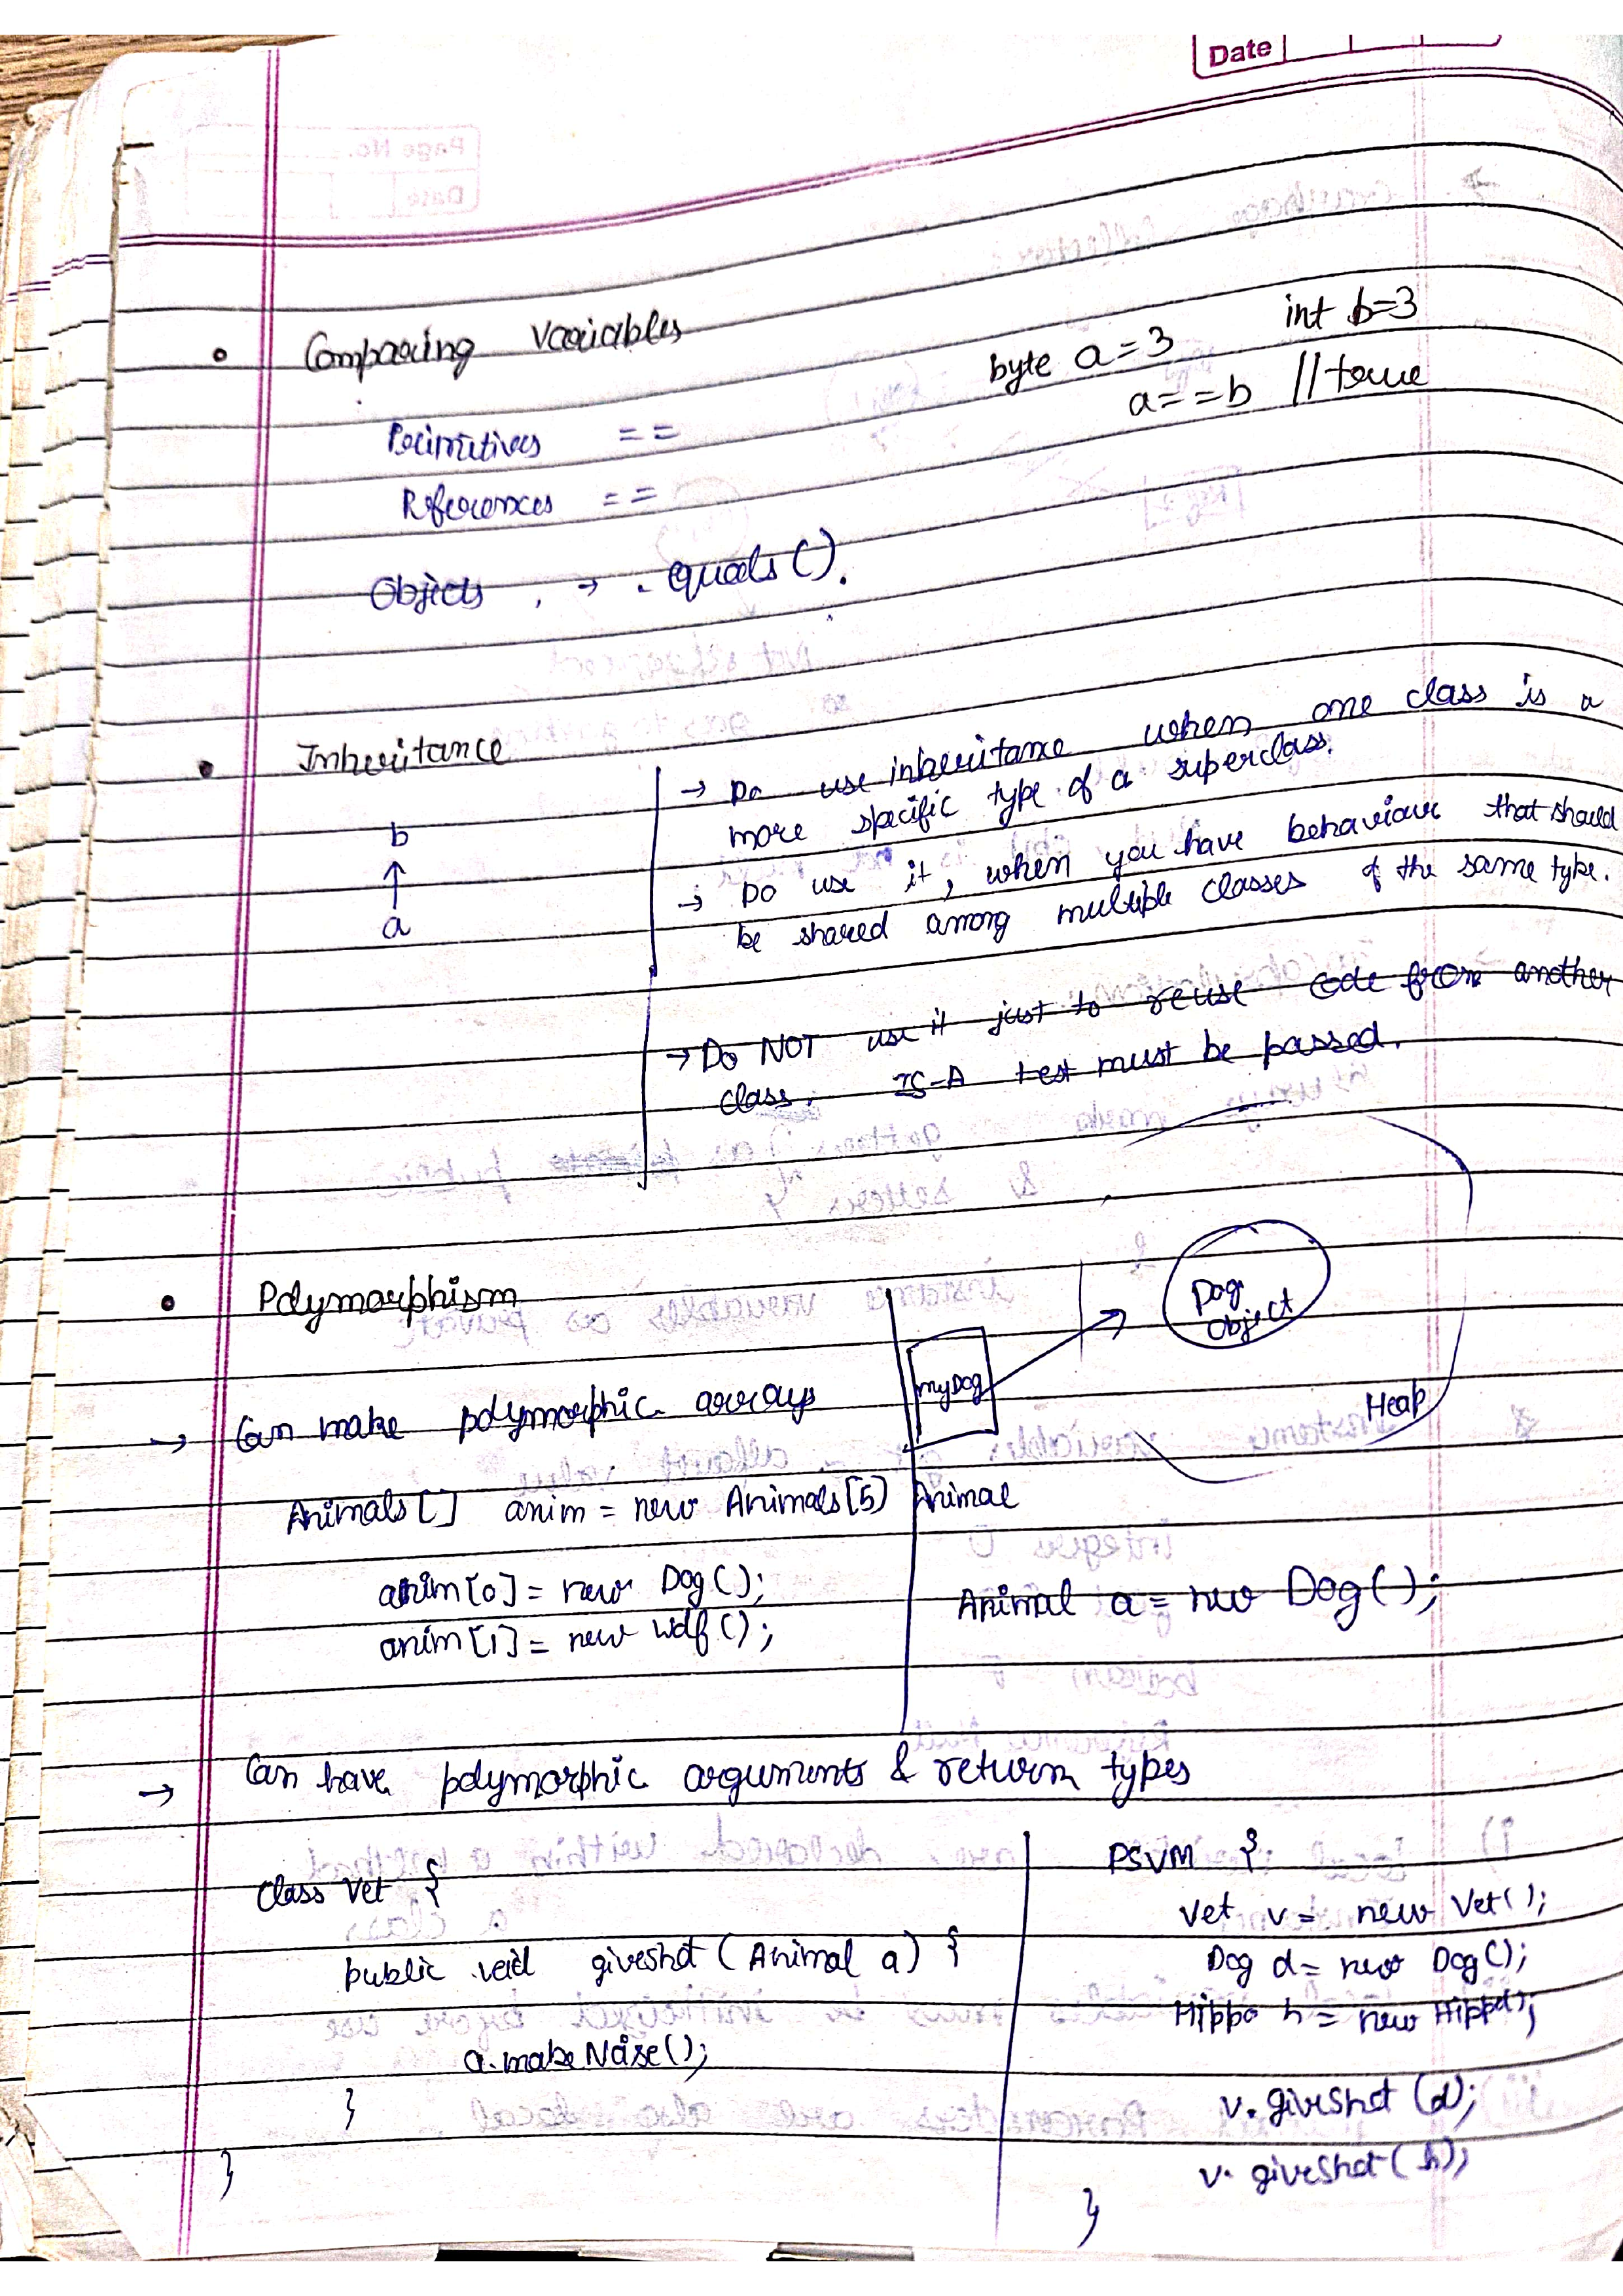 Date
• Comparing Variables
byte a = 3 int b=3
a==b //true
Primitives ==
References ==
Objects → .equals().
• Inheritance
b
↑
a
→ Do use inheritance when one class is a
more specific type of a superclass.
→ Do use it, when you have behaviour that should
be shared among multiple classes of the same type.
→ Do NOT use it just to reuse code from another
class. IS-A test must be passed.
• Polymorphism
→ Can make polymorphic arrays
Animals[] anim = new Animals[5]
anim[0] = new Dog();
anim[1] = new Wolf();
Dog
Object
myDog
Heap
Animal
Animal a = new Dog();
→ Can have polymorphic arguments & return types
Class Vet {
public void giveshot (Animal a) {
a.makeNoise();
}
}
PSVM {
Vet v = new Vet();
Dog d = new Dog();
Hippo h = new Hippo();
v.giveShot (d);
v.giveShot (h);
}